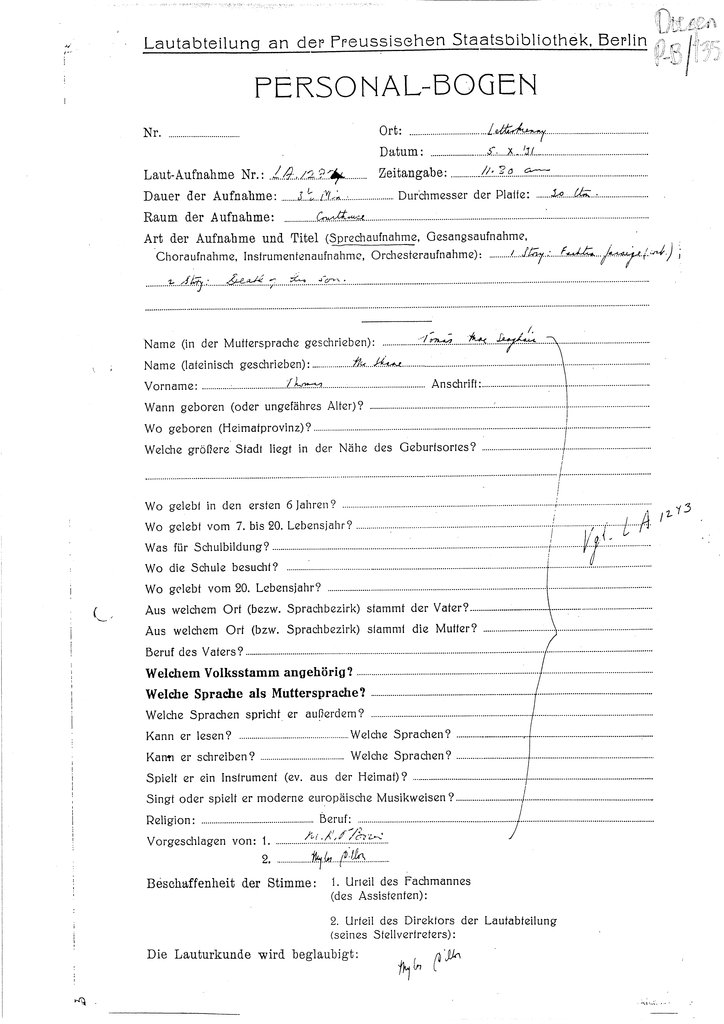 Lautabteilung an der Preussischen Staatsbibliothek, Berlin
PERSONAL-BOGEN
Nr.
Ort: Letterkenny
Datum: 5. X. 31
Laut-Aufnahme Nr.: LA. Zeitangabe: 11.20 am
Dauer der Aufnahme: Min Durchmesser der Platte: 30 cm.
Raum der Aufnahme: Courthouse
Art der Aufnahme und Titel (Sprechaufnahme, Gesangsaufnahme,
Choraufnahme, Instrumentenaufnahme, Orchesteraufnahme): 1 Story:
2 Story: Death of his son.
Name (in der Muttersprache geschrieben): Tomás Mac
Name (lateinisch geschrieben):
Vorname: Thomas Anschrift:
Wann geboren (oder ungefähres Alter)?
Wo geboren (Heimatprovinz)?
Welche größere Stadt liegt in der Nähe des Geburtsortes?
Wo gelebt in den ersten 6 Jahren?
Wo gelebt vom 7. bis 20. Lebensjahr?
Vgl. LA 1243
Was für Schulbildung?
Wo die Schule besucht?
Wo gelebt vom 20. Lebensjahr?
Aus welchem Ort (bezw. Sprachbezirk) stammt der Vater?
Aus welchem Ort (bzw. Sprachbezirk) stammt die Mutter?
Beruf des Vaters?
Welchem Volksstamm angehörig?
Welche Sprache als Muttersprache?
Welche Sprachen spricht er außerdem?
Kann er lesen? Welche Sprachen?
Kann er schreiben? Welche Sprachen?
Spielt er ein Instrument (ev. aus der Heimat)?
Singt oder spielt er moderne europäische Musikweisen?
Religion: Beruf:
Vorgeschlagen von: 1.
2.
Beschaffenheit der Stimme: 1. Urteil des Fachmannes
(des Assistenten):
2. Urteil des Direktors der Lautabteilung
(seines Stellvertreters):
Die Lauturkunde wird beglaubigt: